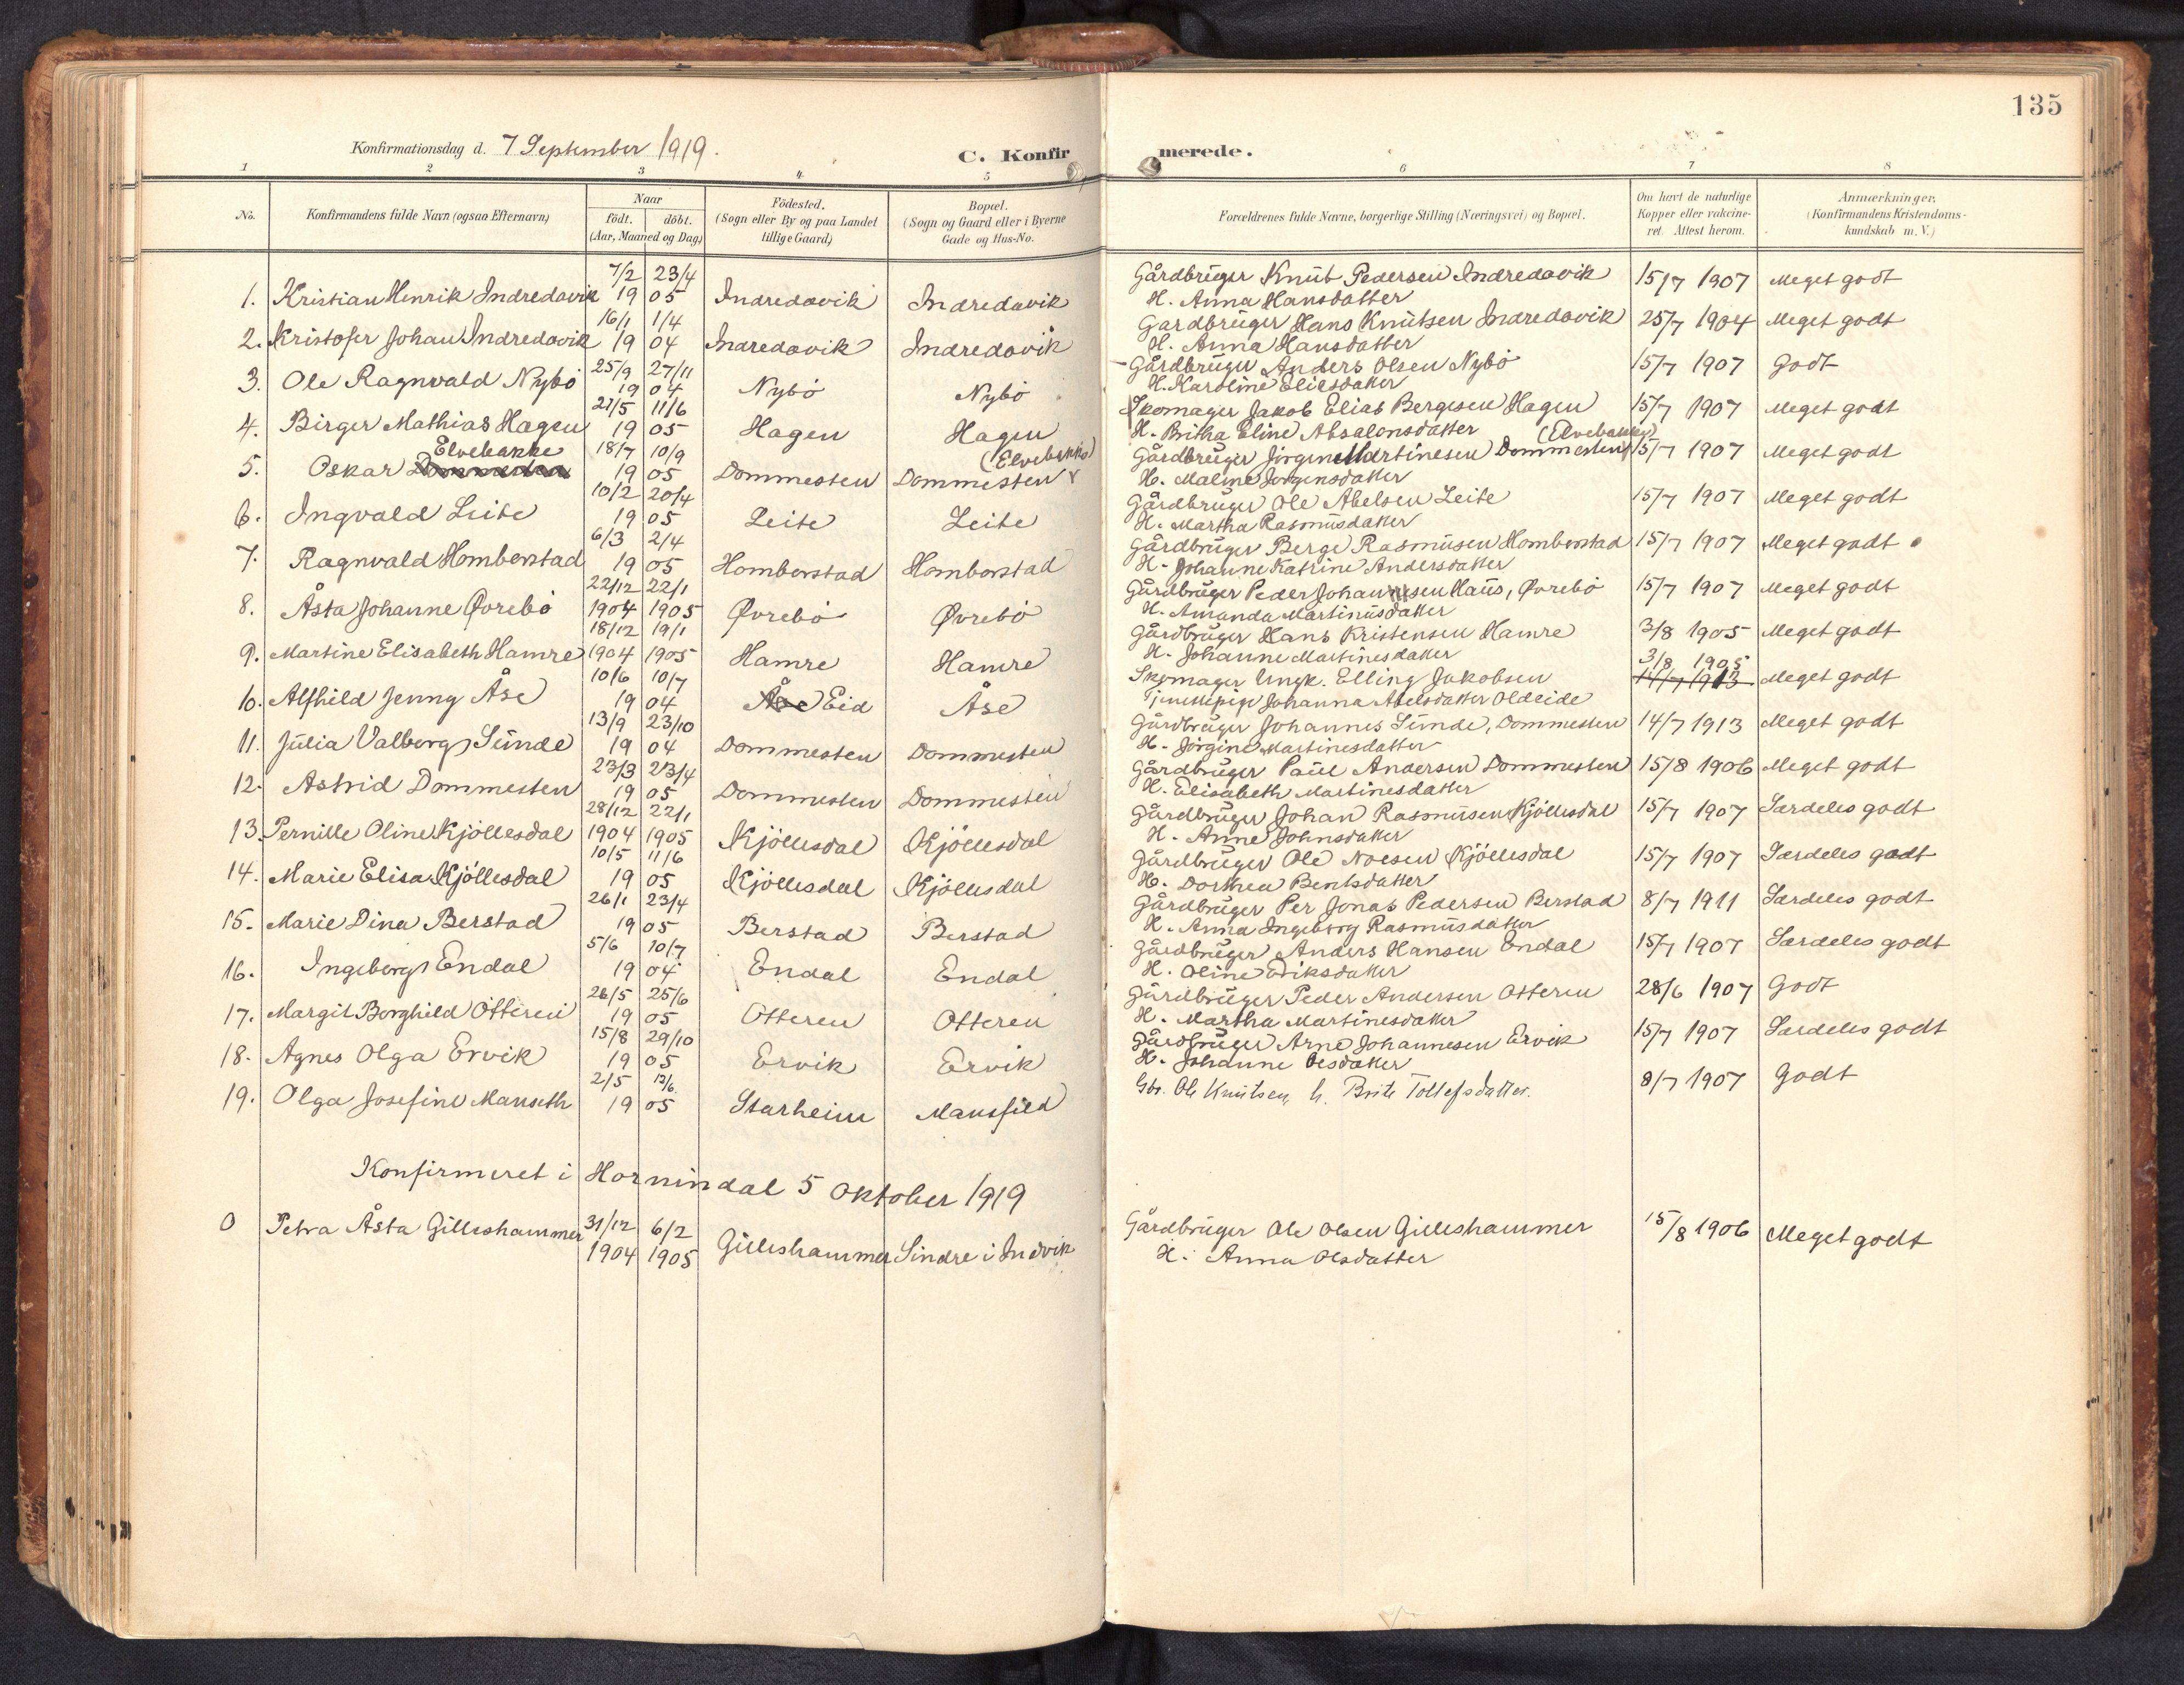 135
Konfirmationsdag d. 7 September 1919.
C. Konfirmerede.
1 2 3 4 5 6 7 8
No.
Konfirmandens fulde Navn (ogsaa Efternavn)
Naar
födt. döbt.
(Aar, Maaned og Dag)
Födested.
(Sogn eller By og paa Landet
tillige Gaard)
Bopæl.
(Sogn og Gaard eller i Byerne
Gade og Hus-No.
Forældrenes fulde Navne, borgerlige Stilling (Næringsvei) og Bopæl.
Om havt de naturlige
Kopper eller vakcine-
ret. Attest herom.
Anmærkninger.
(Konfirmandens Kristendoms-
kundskab m. V.)
1. Kristian Henrik Indredavik 7/2 1905 23/4 Indredavik Indredavik Gårdbruger Knut Pedersen Indredavik 15/7 1907 Meget godt
H. Anna Hansdatter
2. Kristofer Johan Indredavik 16/1 1904 1/4 Indredavik Indredavik Gårdbruger Hans Knutsen Indredavik 25/7 1904 Meget godt
H. Anna Hansdatter
3. Ole Ragnvald Nybö 25/9 1904 27/11 Nybö Nybö Gårdbruger Anders Olsen Nybö 15/7 1907 Godt
H. Karoline Eliesdatter
4. Birger Mathias Hagen 21/5 1905 11/6 Hagen Hagen Skomager Jakob Elias Bergesen Hagen 15/7 1907 Meget godt
H. Britha Eline Absalonsdatter
5. Oskar Elvebakke 18/7 1905 10/9 Dommesten Dommesten (Elvebakke) Gårdbruger Jörgen Martinesen Dommesten (Elvebakke) 15/7 1907 Meget godt
H. Maline Jörgensdatter
6. Ingvald Leite 10/2 1905 20/4 Leite Leite Gårdbruger Ole Abelsen Leite 15/7 1907 Meget godt
H. Martha Rasmusdatter
7. Ragnvald Homborstad 6/3 1905 2/4 Homborstad Homborstad Gårdbruger Berge Rasmusen Homborstad 15/7 1907 Meget godt
H. Johanne Katrine Andersdatter
8. Åsta Johanne Øvrebö 22/12 1904 22/1 1905 Øvrebö Øvrebö Gårdbruger Peder Johannesen Haus, Øvrebö 15/7 1907 Meget godt
H. Amanda Martinusdatter
9. Martine Elisabeth Hamre 18/12 1904 19/1 1905 Hamre Hamre Gårdbruger Hans Kristensen Hamre 3/8 1905 Meget godt
H. Johanne Martinesdatter
10. Alfhild Jenny Åse 10/6 1904 10/7 Åse Eid Åse Skomager Ungk. Elling Jakobsen 3/8 1905 14/7 1913 Meget godt
Tjenestepige Johanna Abelsdatter Oldeide
11. Julia Valborg Sunde 13/9 1904 23/10 Dommesten Dommesten Gårdbruger Johannes Sunde, Dommesten 14/7 1913 Meget godt
H. Jörgine Martinesdatter
12. Astrid Dommesten 23/3 1905 23/4 Dommesten Dommesten Gårdbruger Paul Andersen Dommesten 15/8 1906 Meget godt
H. Elisabeth Martinesdatter
13. Pernille Oline Kjöllesdal 28/12 1904 22/1 1905 Kjöllesdal Kjöllesdal Gårdbruger Johan Rasmusen Kjöllesdal 15/7 1907 Særdeles godt
H. Anne Johnsdatter
14. Marie Elisa Kjöllesdal 10/5 1905 11/6 Kjöllesdal Kjöllesdal Gårdbruger Ole Noesen Kjöllesdal 15/7 1907 Særdeles godt
H. Dorthea Bentsdatter
15. Marie Dina Berstad 26/1 1905 23/4 Berstad Berstad Gårdbruger Per Jonas Pedersen Berstad 8/7 1911 Særdeles godt
H. Anna Ingeborg Rasmusdatter
16. Ingeborg Endal 5/6 1904 10/7 Endal Endal Gårdbruger Anders Hansen Endal 15/7 1907 Særdeles godt
H. Oline Eriksdatter
17. Margit Borghild Otteren 26/5 1905 25/6 Otteren Otteren Gårdbruger Peder Andersen Otteren 28/6 1907 Godt
H. Martha Martinesdatter
18. Agnes Olga Ervik 15/8 1905 29/10 Ervik Ervik Gårdbruger Arne Johannesen Ervik 15/7 1907 Særdeles godt
H. Johanne Olesdatter
19. Olga Josefine Manseth 2/5 1905 12/6 Starheim Mansfeld Gbr. Ole Knutsen, h. Brite Tollefsdatter. 8/7 1907 Godt
Konfirmeret i Hornindal 5 Oktober 1919
0 Petra Åsta Gilleshammer 31/12 1904 6/2 1905 Gilleshammer Sindre i Indvik Gårdbruger Ole Olsen Gilleshammer 15/8 1906 Meget godt
H. Anna Olsdatter